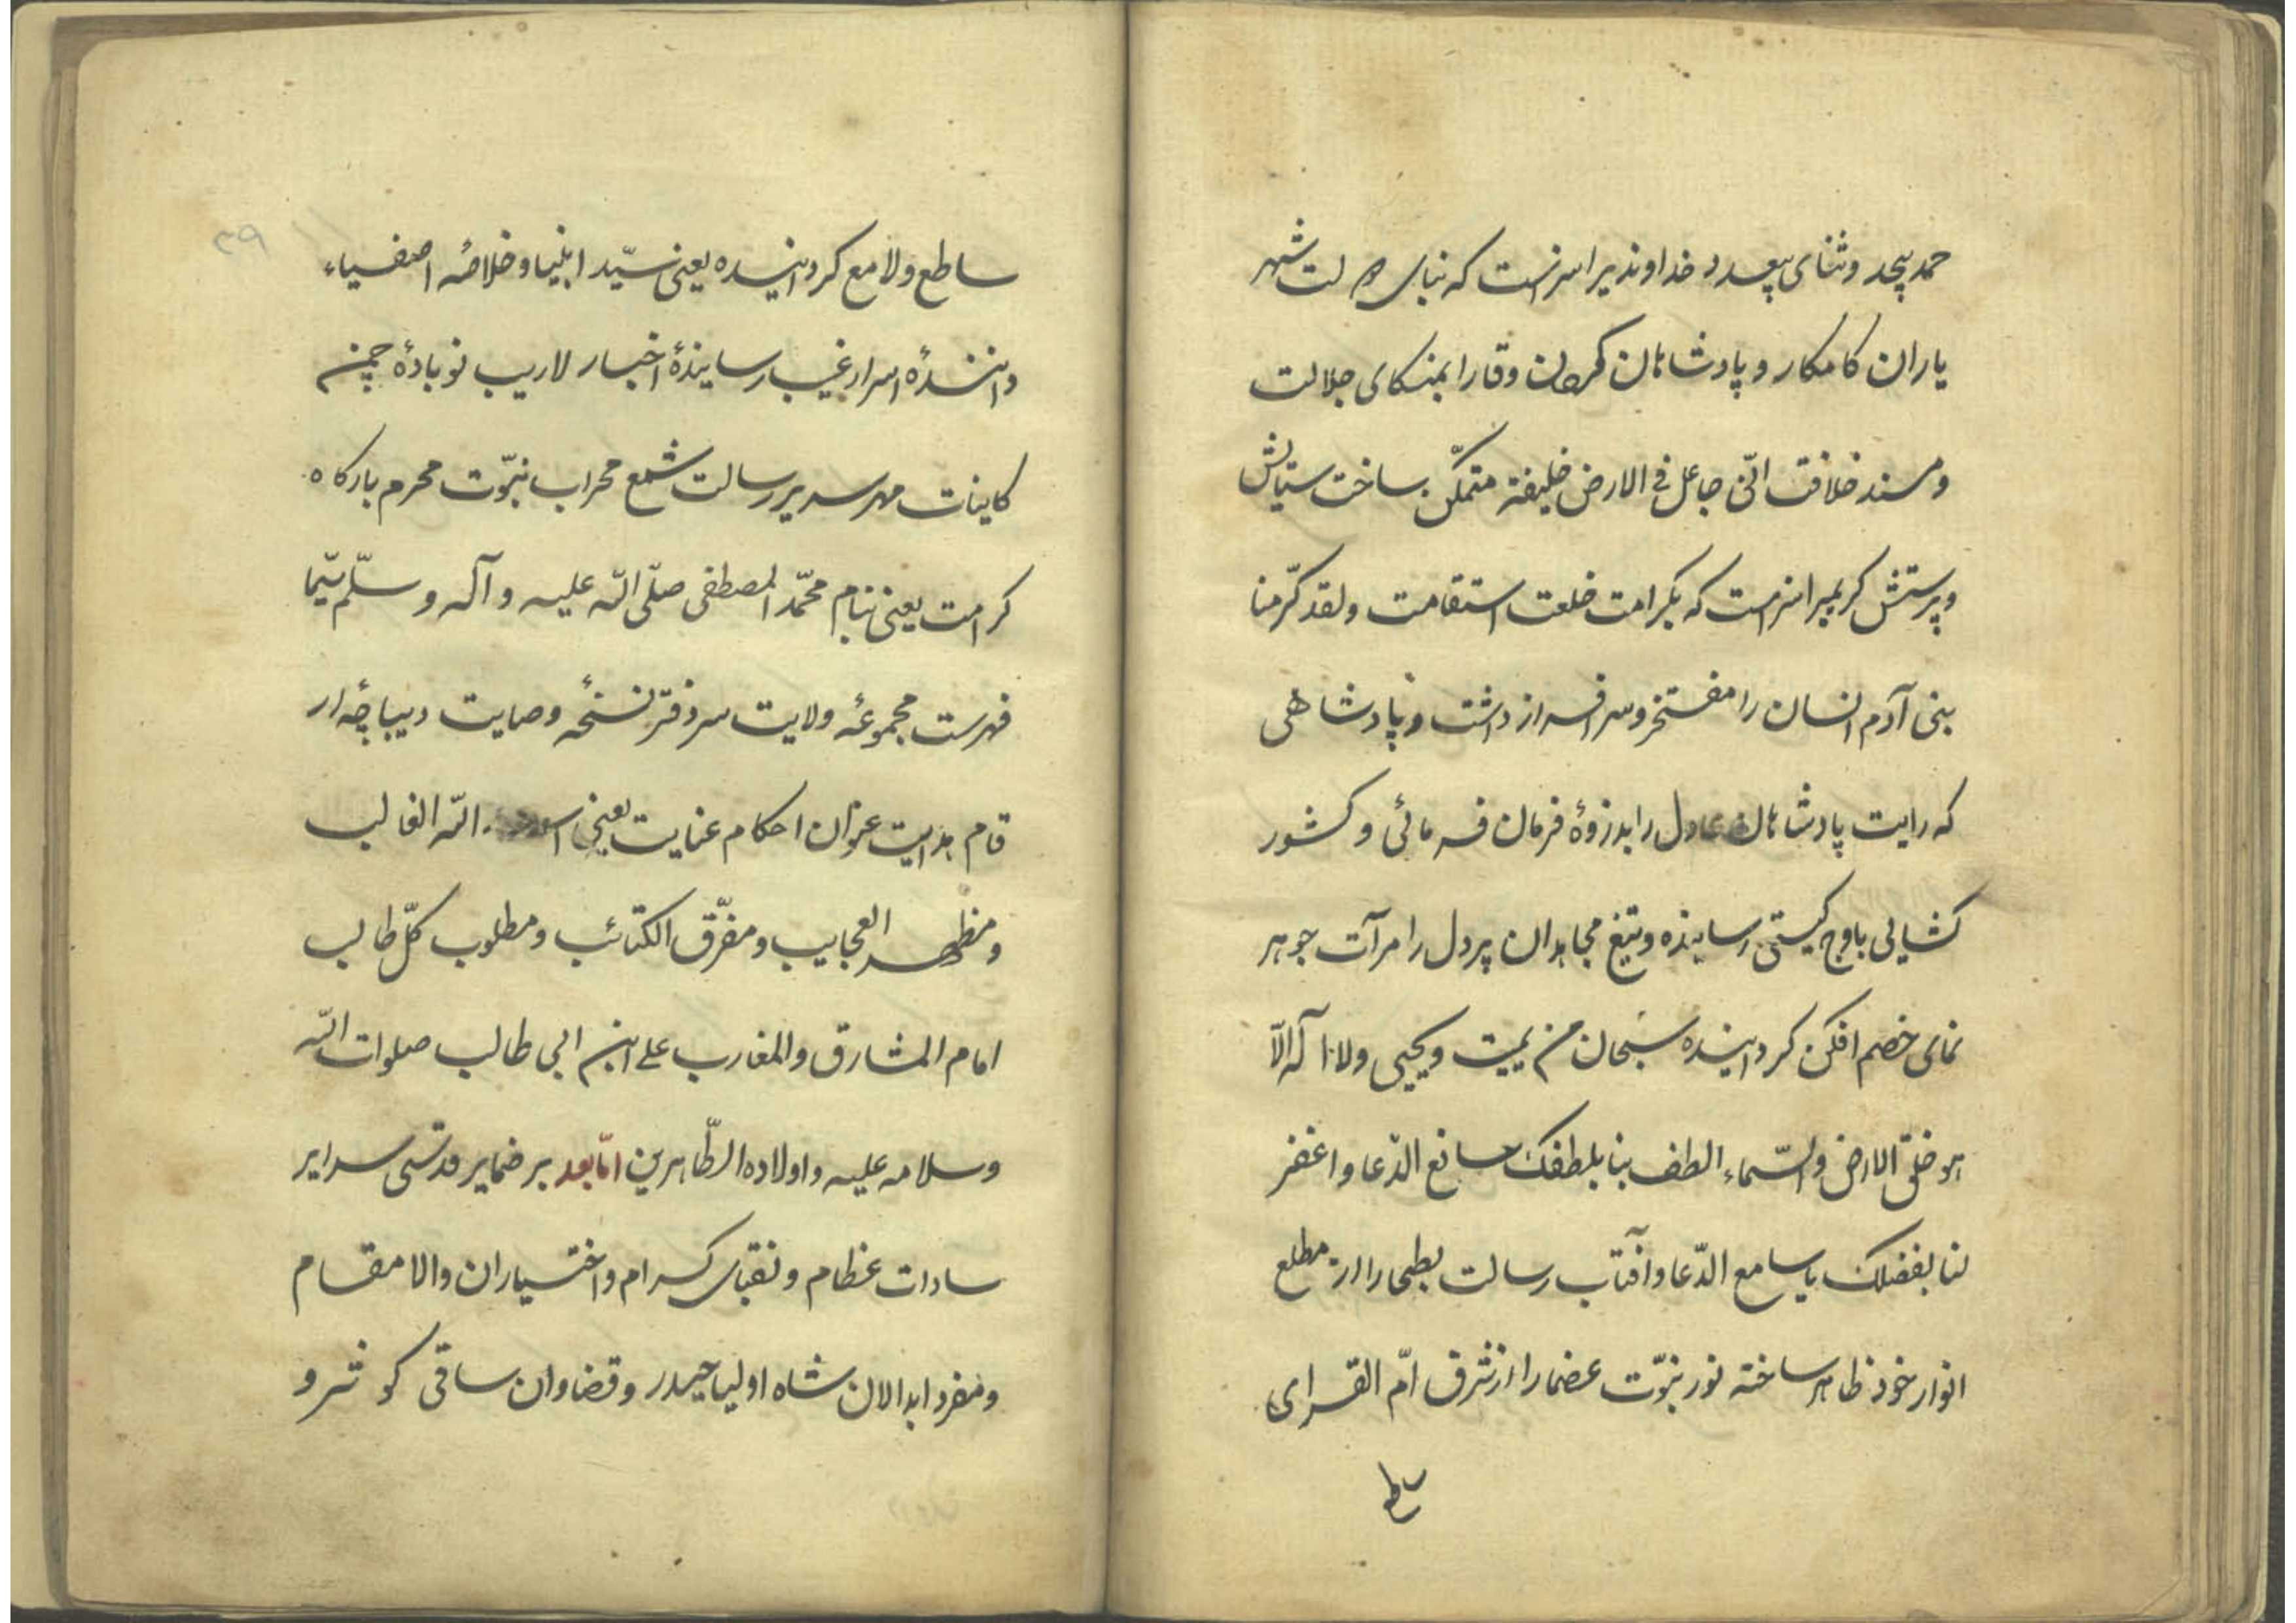 حمد بیحد و ثنای بیعدد خداوندیرا سزاست که بنای دولت شهر
یاران کامکار و پادشاهان گردون وقار را بمتکای جلالت
و مسند خلافت انّی جاعل فی الارض خلیفة متمکّن ساخت ستایش
و پرستش کریمیرا سزاست که بکرامت خلعت استقامت ولقد کرّمنا
بنی آدم انسان را مفتخر و سرافراز داشت و پادشاهی
که رایت پادشاهان عادل را بدزوهٔ فرمان فرمائی و کشور
کشایی باوج کیتی رسانیده و تیغ مجاهدان پر دل را مرآت جوهر
نمای خصم افکن کردانیده سبحان من یمیت و یحیی ولا اله الّا
هو خلق الارض والسّماء الطف بنا بلطفک صانع الدّعا واغفر
لنا بفضلک یا سامع الدّعا و آفتاب رسالت بطحا را از مطلع
انوار خود ظاهر ساخته نور نبوّت عضما را از شرق امّ القرای
ساطع
۳۹
ساطع و لامع کردانیده یعنی سیّد انبیا و خلاصهٔ اصفیاء
دانندهٔ اسرار غیب رسانیندهٔ اخبار لاریب نوبادهٔ چمن
کاینات مهر سریر رسالت شمع محراب نبوّت محرم بارکاه
کرامت یعنی بنام محمّد المصطفی صلّی الله علیه و آله و سلّم سیّما
فهرست مجموعهٔ ولایت سر دفتر نسخهٔ وصایت دیباچهٔ ار
قام هدایت عنوان احکام عنایت یعنی اسد الله الغالب
و مظهر العجایب و مفرّق الکتائب و مطلوب کلّ طالب
امام المشارق والمغارب علی ابن ابی طالب صلوات الله
و سلامه علیه و اولاده الطّاهرین امّا بعد بر ضمایر قدسی سرایر
سادات عظام و نقبای کرام و اختیاران والا مقام
و مفرد ابدالان شاه اولیا حیدر و قضاوان ساقی کوثر و